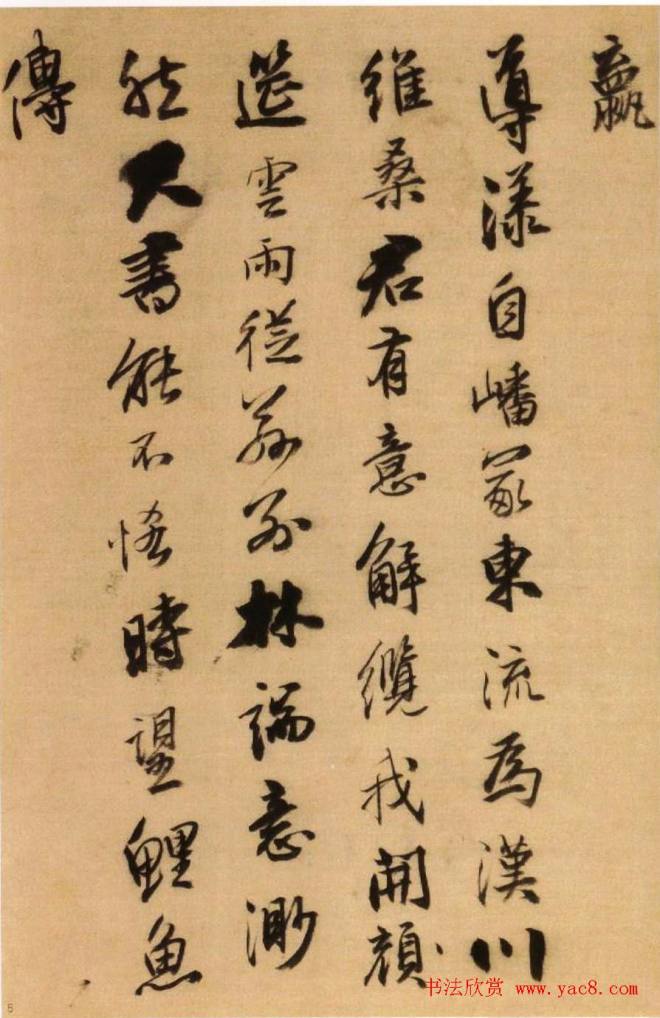 羸
導漾自嶓冢東流為漢川
維桑君有意解纜我開顏
筵雲雨從茲別林端意渺
然尺書能不惜時望鯉魚
傳
书法欣赏 www.yac8.com
5